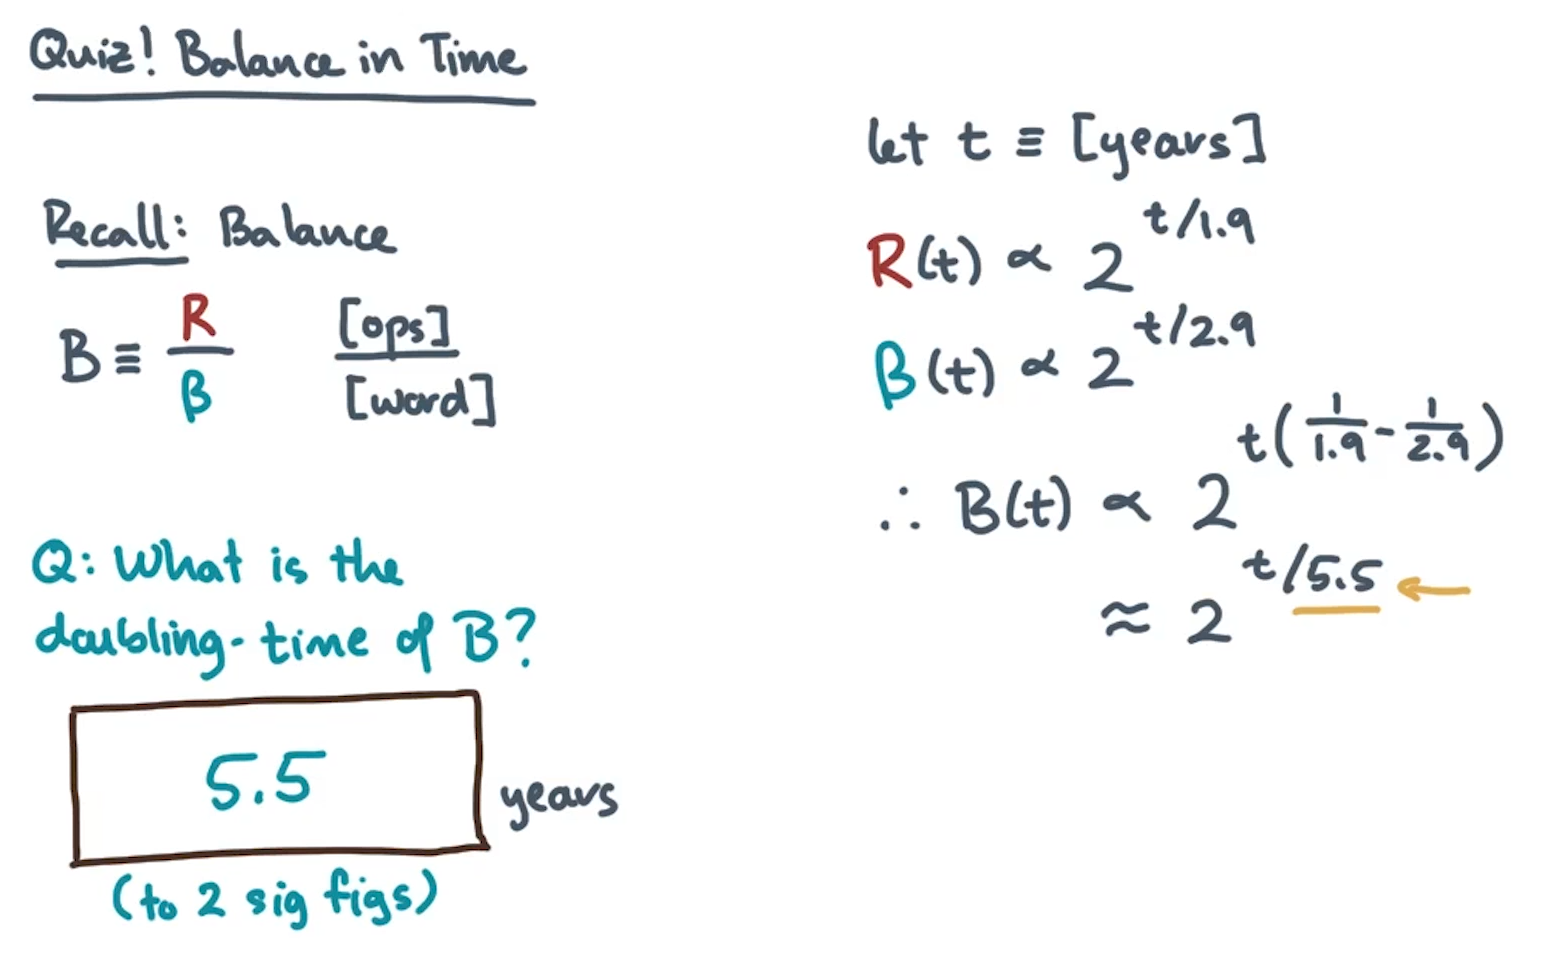 Quiz! Balance in Time
Recall: Balance
B ≡ R/β [ops]/[word]
Q: What is the
doubling-time of B?
5.5 years
(to 2 sig figs)
let t ≡ [years]
R(t) ∝ 2^(t/1.9)
β(t) ∝ 2^(t/2.9)
∴ B(t) ∝ 2^(t(1/1.9 - 1/2.9))
≈ 2^(t/5.5) ←